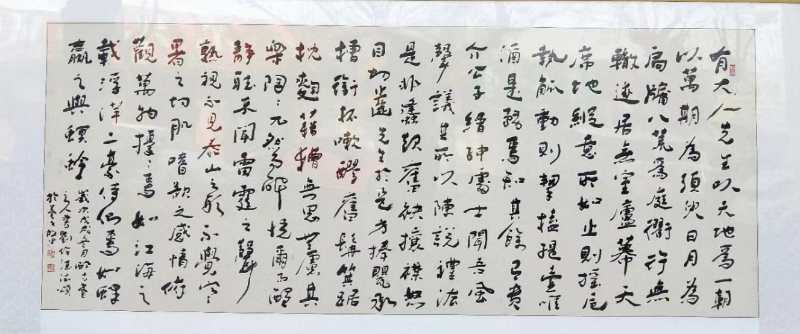 有大人先生以天地為一朝
以萬期為須臾日月為
扃牖八荒為庭衢行無
轍迹居無室廬幕天
席地縱意所如止則操卮
執觚動則挈榼提壺唯
酒是務焉知其餘有貴
介公子縉紳處士聞吾風
聲議其所以陳說禮法
是非鋒起奮袂攘襟怒
目切齒先生於是方捧甖承
槽銜杯漱醪奮髯箕踞
枕麴藉糟無思無慮其
樂陶陶兀然而醉恍爾而醒
靜聽不聞雷霆之聲
熟視不見泰山之形不覺寒
暑之切肌嗜欲之感情俯
觀萬物擾擾焉如江海之
載浮萍二豪侍側焉如蜾
蠃之與螟蛉
歲次戊戌
主人書劉伶酒德頌